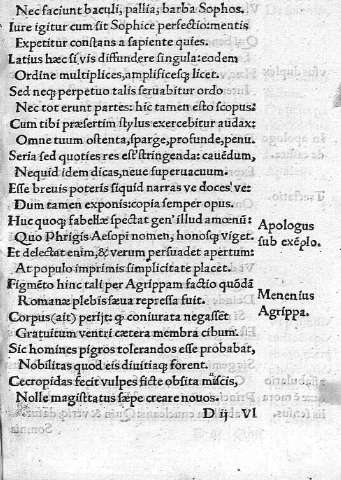 Nec faciunt baculi, pallia; barba Sophos.
Iure igitur cum sit Sophice perfectio: mentis
Expetitur constans a sapiente quies.
Latius hæc si vis diffundere singula: eodem
Ordine multiplices, amplificesq; licet.
Sed neq; perpetuo talis seruabitur ordo
Nec tot erunt partes: hic tamen esto scopus:
Cum tibi præsertim stylus exercebitur audax:
Omne tuum ostenta, sparge, profunde, penu.
Seria sed quoties res est stringenda: cauēdum,
Nequid idem dicas, neue superuacuum.
Esse breuis poteris siquid narras ve doces ve:
Dum tamen exponis: copia semper opus.
Huc quoq; fabellæ spectat gen' illud amœnū:
Quo Phrigis Aesopi nomen, honosq; viget.
Et delectat enim, & verum persuadet apertum:
At populo imprimis simplicitate placet.
Figmēto hinc tali per Agrippam factio quōdā
Romanæ plebis sæua repressa fuit.
Corpus (ait) perijt: q̨ coniurata negassēt
Gratuitum ventri cætera membra cibum.
Sic homines pigros tolerandos esse probabat,
Nobilitas quod eis diuitiæq; forent.
Cecropidas fecit vulpes ficte obsita muscis,
Nolle magistratus sæpe creare nouos.
Apologus
sub exēplo.
Menenius
Agrippa.
D ij VI